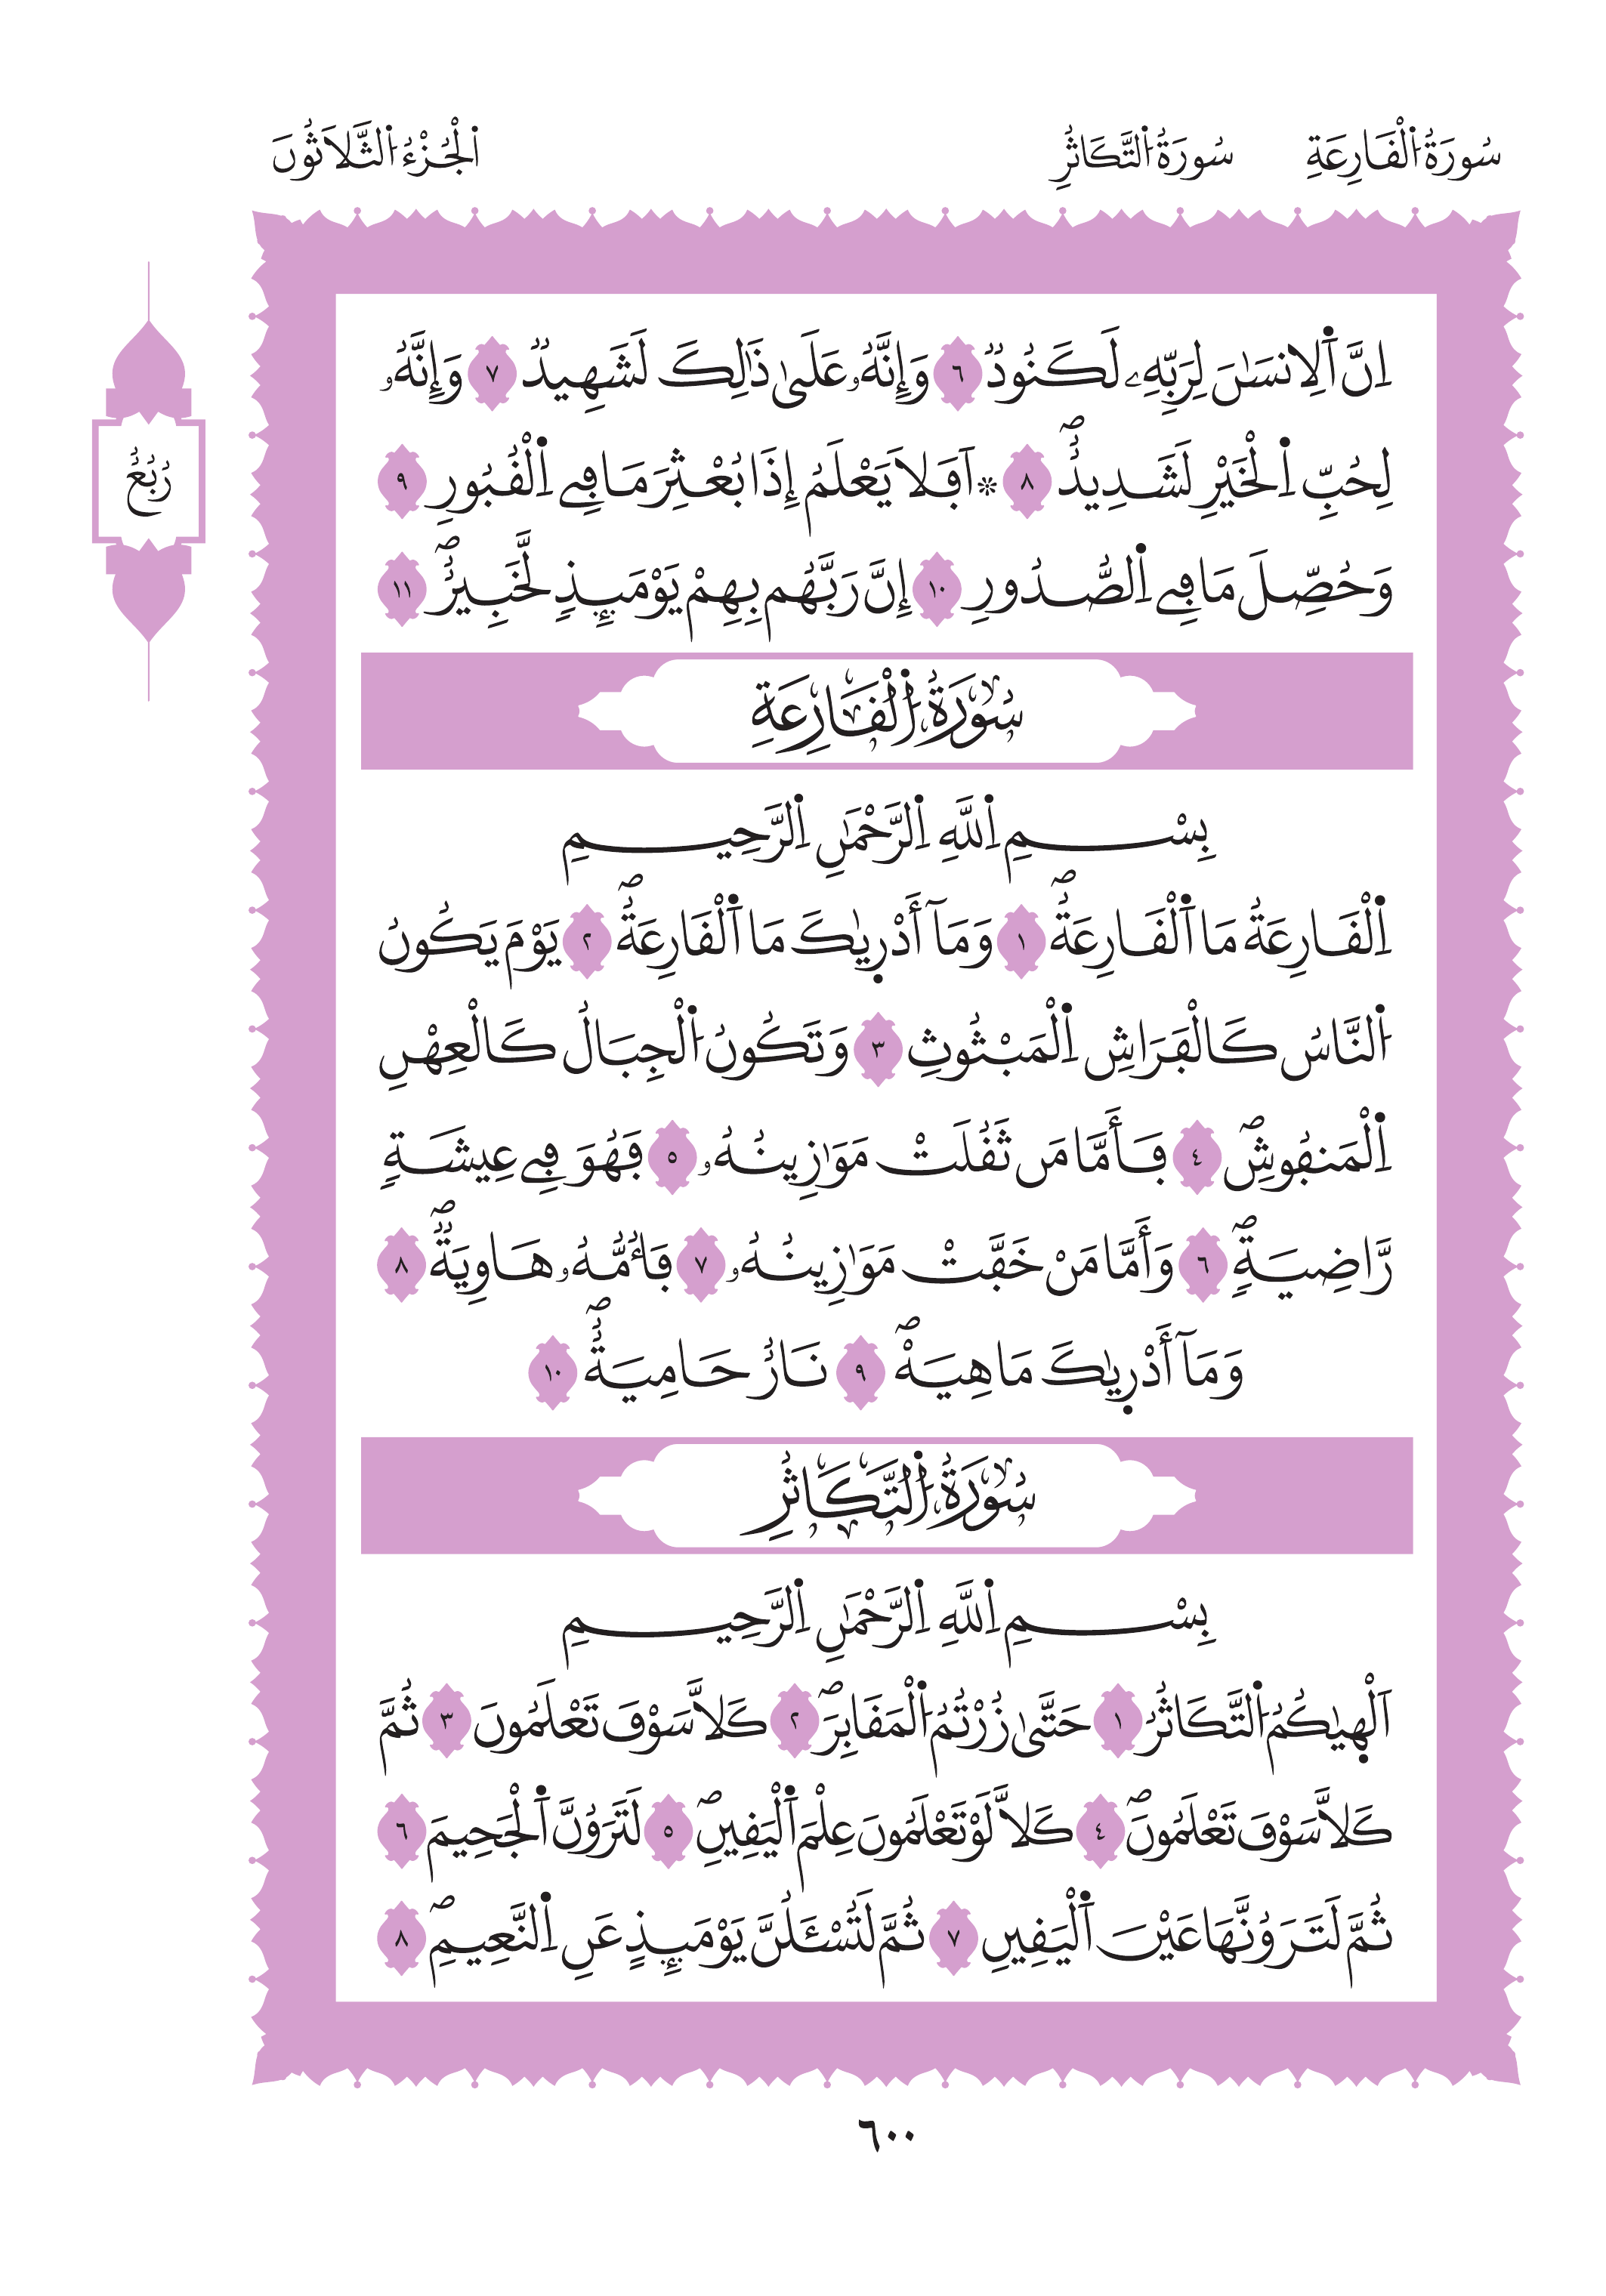 سُورَةُ اُ۬لْقَارِعَةِ سُورَةُ اُ۬لتَّكَاثُرِ اَ۬لْجُزْءُ اُ۬لثَّلَاثُونَ
اِنَّ اَ۬لِانسَٰنَ لِرَبِّهِۦ لَكَنُودٞ ٦ وَإِنَّهُۥ عَلَىٰ ذَٰلِكَ لَشَهِيدٞ ٧ وَإِنَّهُۥ
لِحُبِّ اِ۬لْخَيْرِ لَشَدِيدٌۖ ٨ ۞اَفَلَا يَعْلَمُ إِذَا بُعْثِرَ مَا فِے اِ۬لْقُبُورِ ٩
وَحُصِّلَ مَا فِے اِ۬لصُّدُورِ ١٠ إِنَّ رَبَّهُم بِهِمْ يَوْمَئِذٖ لَّخَبِيرٌۖ ١١
رُبُعُ
سُورَةُ اُ۬لْقَارِعَةِ
بِسْمِ اِ۬للَّهِ اِ۬لرَّحْمَٰنِ اِ۬لرَّحِيمِ
اِ۬لْقَارِعَةُ مَا اَ۬لْقَارِعَةُۖ ١ وَمَآ أَدْر۪يٰكَ مَا اَ۬لْقَارِعَةُۖ ٢ يَوْمَ يَكُونُ
اُ۬لنَّاسُ كَالْفَرَاشِ اِ۬لْمَبْثُوثِ ٣ وَتَكُونُ اُ۬لْجِبَالُ كَالْعِهْنِ
اِ۬لْمَنفُوشِۖ ٤ فَأَمَّا مَن ثَقُلَتْ مَوَٰزِينُهُۥ ٥ فَهُوَ فِے عِيشَةٖ
رَّاضِيَةٖۖ ٦ وَأَمَّا مَنْ خَفَّتْ مَوَٰزِينُهُۥ ٧ فَأُمُّهُۥ هَاوِيَةٞۖ ٨
وَمَآ أَدْر۪يٰكَ مَا هِيَهْۖ ٩ نَارٌ حَامِيَةٌۖ ١٠
سُورَةُ اُ۬لتَّكَاثُرِ
بِسْمِ اِ۬للَّهِ اِ۬لرَّحْمَٰنِ اِ۬لرَّحِيمِ
اَلْه۪يٰكُمُ اُ۬لتَّكَاثُرُ ١ حَتَّىٰ زُرْتُمُ اُ۬لْمَقَابِرَۖ ٢ كَلَّا سَوْفَ تَعْلَمُونَ ٣ ثُمَّ
كَلَّا سَوْفَ تَعْلَمُونَۖ ٤ كَلَّا لَوْ تَعْلَمُونَ عِلْمَ اَ۬لْيَقِينِۖ ٥ لَتَرَوُنَّ اَ۬لْجَحِيمَ ٦
ثُمَّ لَتَرَوُنَّهَا عَيْنَ اَ۬لْيَقِينِ ٧ ثُمَّ لَتُسْـَٔلُنَّ يَوْمَئِذٍ عَنِ اِ۬لنَّعِيمِۖ ٨
٦٠٠